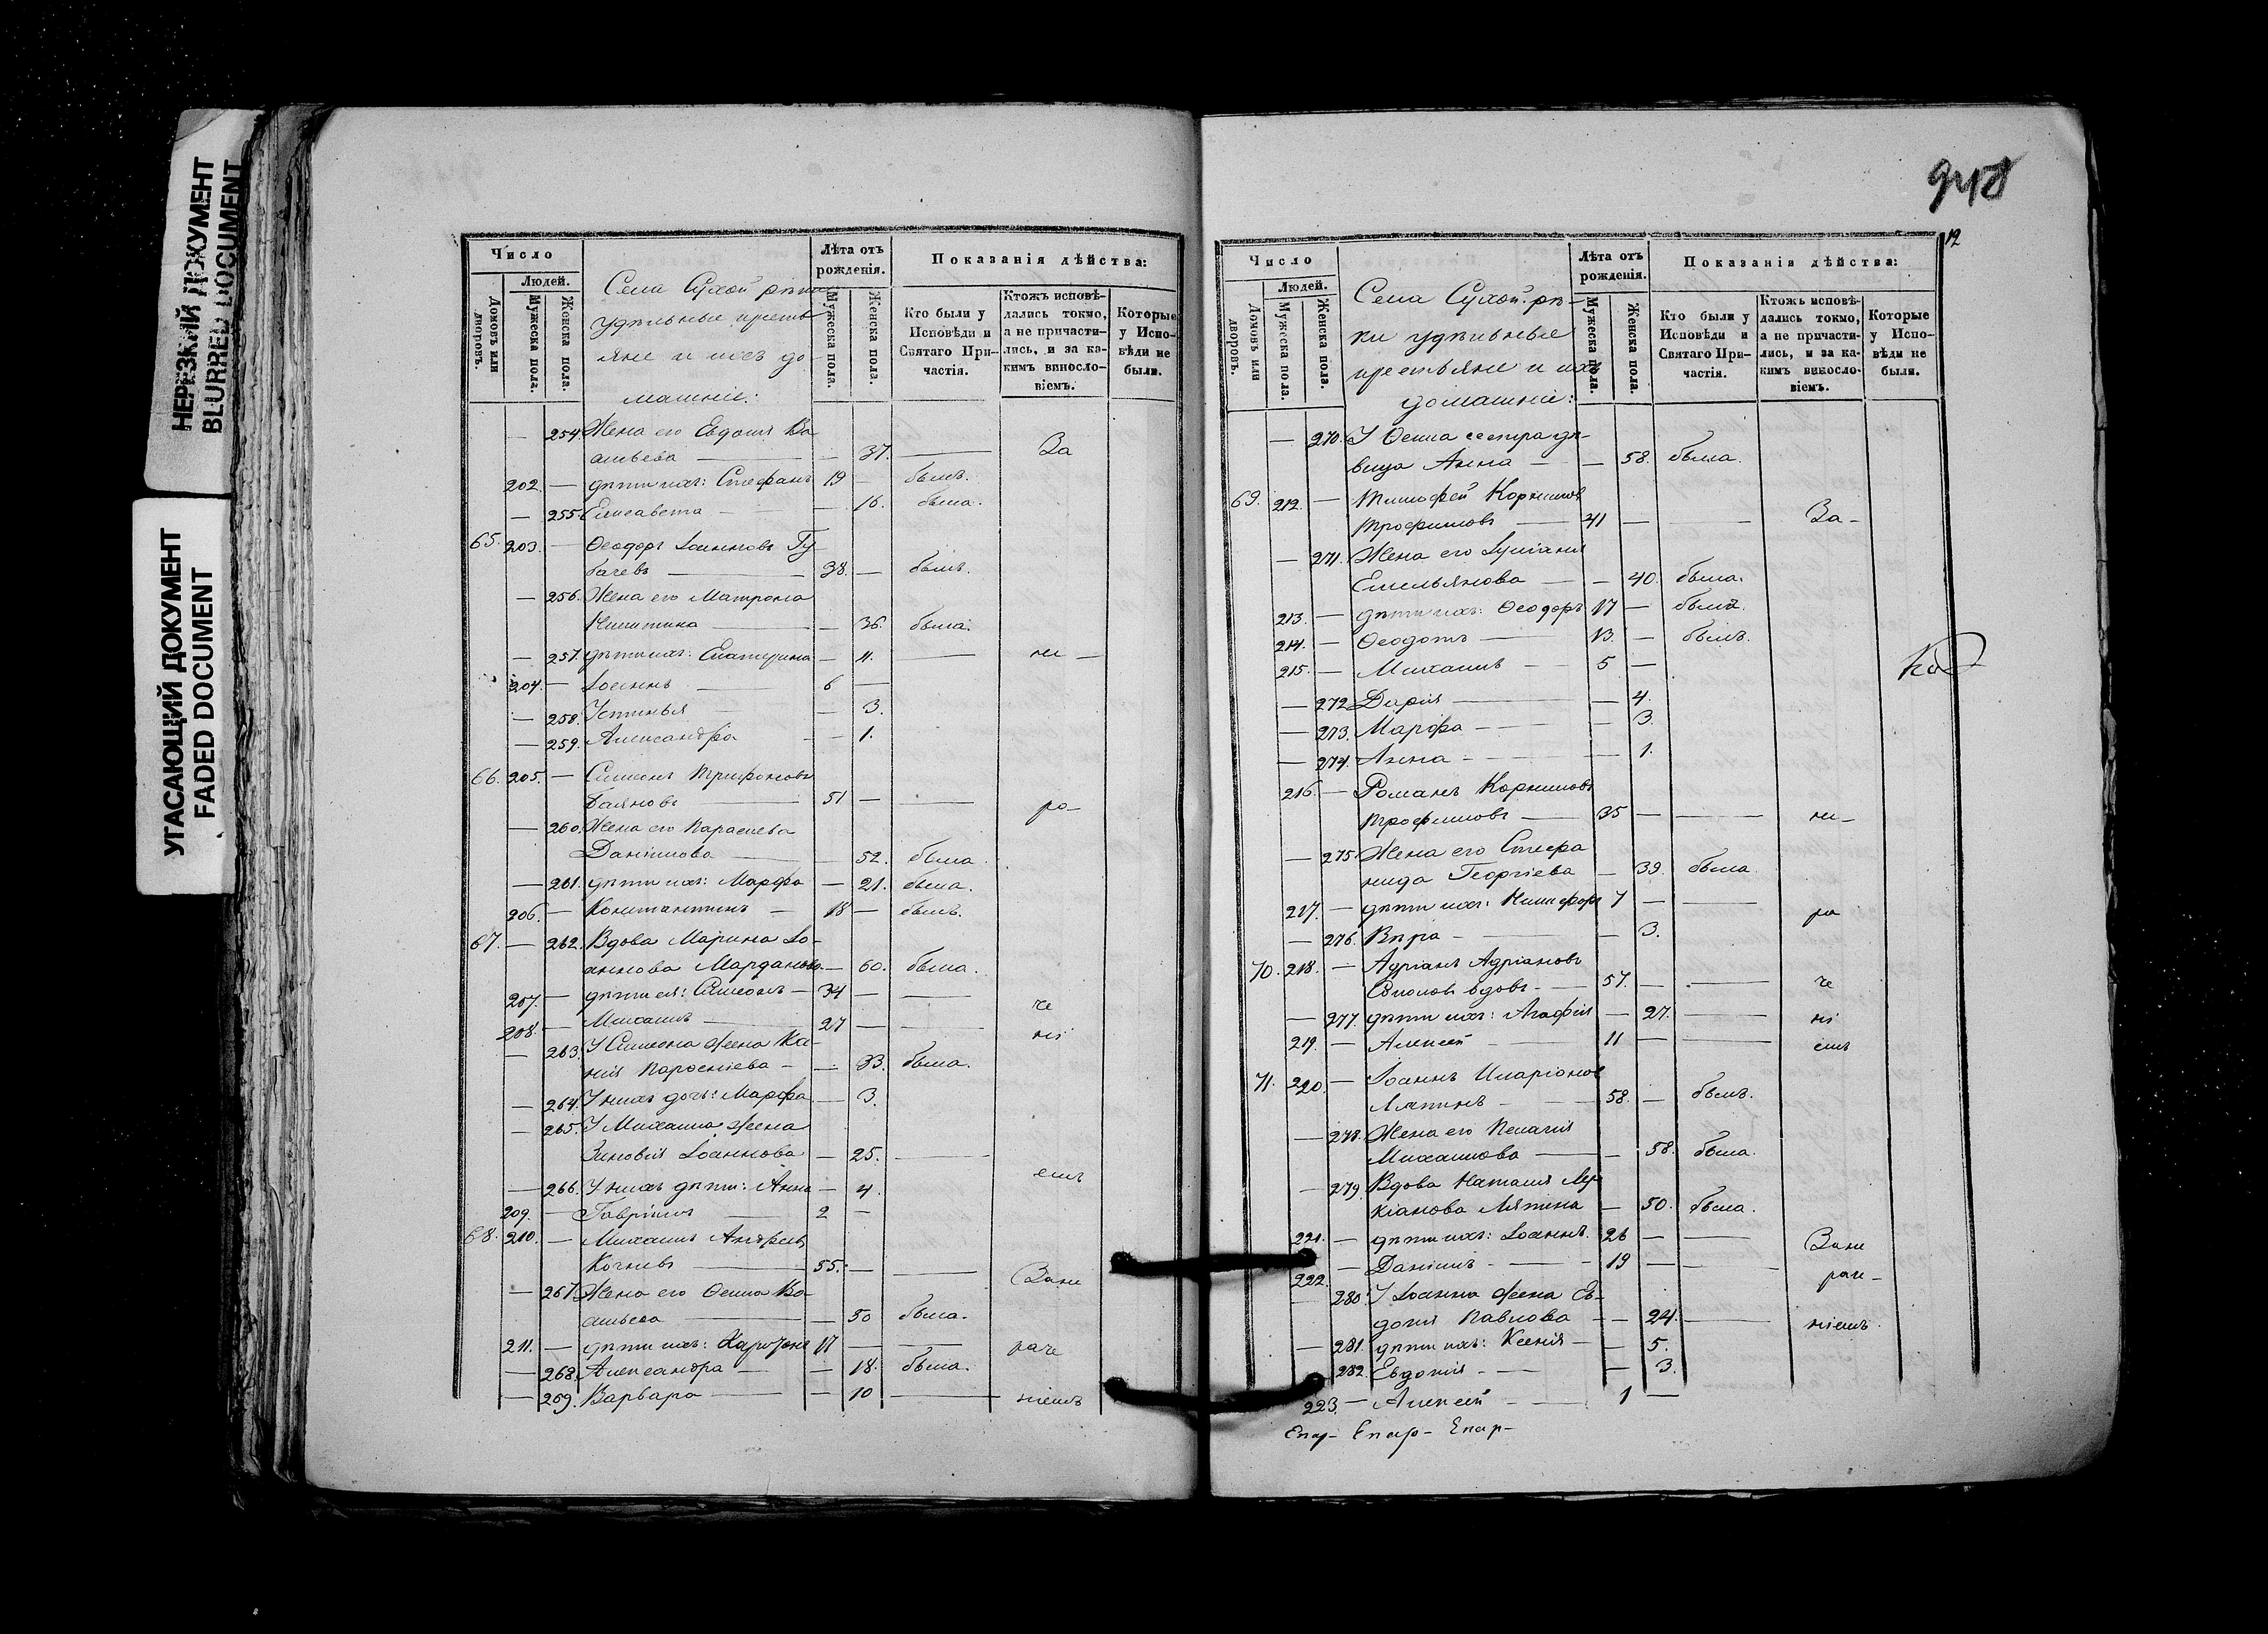 НЕРЕЗКИЙ ДОКУМЕНТ
BLURRED DOCUMENT
УГАСАЮЩИЙ ДОКУМЕНТ
FADED DOCUMENT
Число
Людей.
Домовъ или дворовъ.
Мужеска пола.
Женска пола.
Села Сухой рѣки
удѣльные кресть
яне и ихъ до-
машніе:
Лѣта отъ рожденія.
Мужеска пола.
Женска пола.
Показанія дѣйства:
Кто были у Исповѣди и Святаго При-частія.
Ктожъ исповѣ-дались токмо, а не причасти-лись, и за ка-кимъ винословіемъ.
Которые у Испо-вѣди не были.
— 254. Жена его Евдокія Ва
сильева — — 37. — За
202. — дѣти ихъ: Стефанъ 19 — былъ.
— 255. Елисавета — — 16. была.
65. 203. — Ѳеодоръ Іоанновъ Гу-
бачевъ — 38. — былъ.
— 256. Жена его Матрона
Никитина — — 36. была.
— 257. дѣти ихъ: Екатерина — 11. — не —
204. — Іоаннъ — 6 —
— 258. Устинья — — 3.
— 259. Александра — — 1.
66. 205. — Симеонъ Трифоновъ
Баяновъ — 51 — — ра—
— 260. Жена его Параскева
Даніилова — — 52. была.
— 261. дѣти ихъ: Марфа — 21. была.
206. — Константинъ — 18 — былъ.
67. — 262. Вдова Марина Іо-
аннова Марданова — 60. была.
207. — дѣти ея: Симеонъ — 34 — — че
208. — Михаилъ — 27 — — ні
— 263. У Симеона жена Ксе-
нія — — 33. была.
— 264. У нихъ дочь: Марфа — 3.
— 265. У Михаила жена
Зиновія Іоаннова — 25. — емъ
— 266. У нихъ дѣти: Анна — 4.
209. — Гавріилъ — 2 —
68. 210. — Михаилъ Андреевъ
Кочневъ — 55. — — Зане
— 267. Жена его Ѳекла Ва-
сильева — — 50 была.
211. — дѣти ихъ: Харитонъ 17 — — раче
— 268. Александра — — 18. была.
— 269. Варвара — — 10 — ніемъ
948
12
Число
Людей.
Домовъ или дворовъ.
Мужеска пола.
Женска пола.
Села Сухой рѣ-
ки удѣльные
крестьяне и ихъ
домашніе:
Лѣта отъ рожденія.
Мужеска пола.
Женска пола.
Показанія дѣйства:
Кто были у Исповѣди и Святаго При-частія.
Ктожъ исповѣ-дались токмо, а не причасти-лись, и за ка-кимъ винословіемъ.
Которые у Испо-вѣди не были.
— 270. У Ѳекла сестра дѣ-
вица Анна — — 58. была.
69. 212. — Тимофей Корнилов
Трофимовъ — 41 — — За-
— 271. Жена его Іуліанія
Емельянова — — 40. была.
213. — дѣти ихъ: Ѳеодоръ 17 — былъ.
214. — Ѳеодотъ — 13. — былъ.
215. — Михаилъ — 5 —
— 272. Дарія — 4.
— 273. Марфа — — 3.
— 274. Анна — — 1.
216. — Романъ Корниловъ
Трофимовъ — 35 — — не—
— 275. Жена его Стефа
нида Георгіева — 39. была
217. — дѣти ихъ: Никифоръ 7 — — ра
— 276. Вѣра — — 3.
70. 218. — Адріанъ Адріановъ
Соколов вдовъ — 57. — — че
— 277. дѣти ихъ: Агафія — 27. — ні
219. — Алексѣй — 11 — — емъ
71. 220. — Іоаннъ Иларіонов
Ляпинъ — 58. — былъ.
— 278. Жена его Пелагія
Михаилова — — 58. была.
— 279. Вдова Наталія Лу-
кіанова Ляпина — 50. была.
221. — дѣти ихъ: Іоаннъ. 26 — — Зане
222. — Даніилъ — 19 — — раче-
— 280. У Іоанна жена Ев-
докія Павлова — — 24. — ніемъ.
— 281. дѣти ихъ: Ксенія — — 5.
282. Евдокія — — 3.
223. — Алексѣй — 1 —